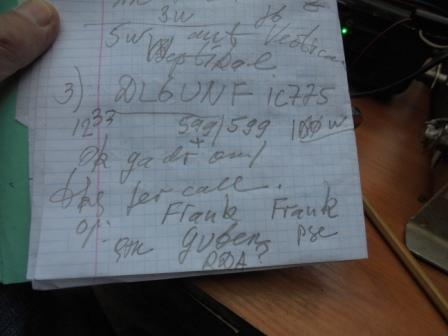 3w
5w ant Vertical
Vertikal
3) DL6UNF ic775
12 33 599/599 100w
+
Ok ga dr om/
for call.
op: Frank Frank
Guben pse
RDA